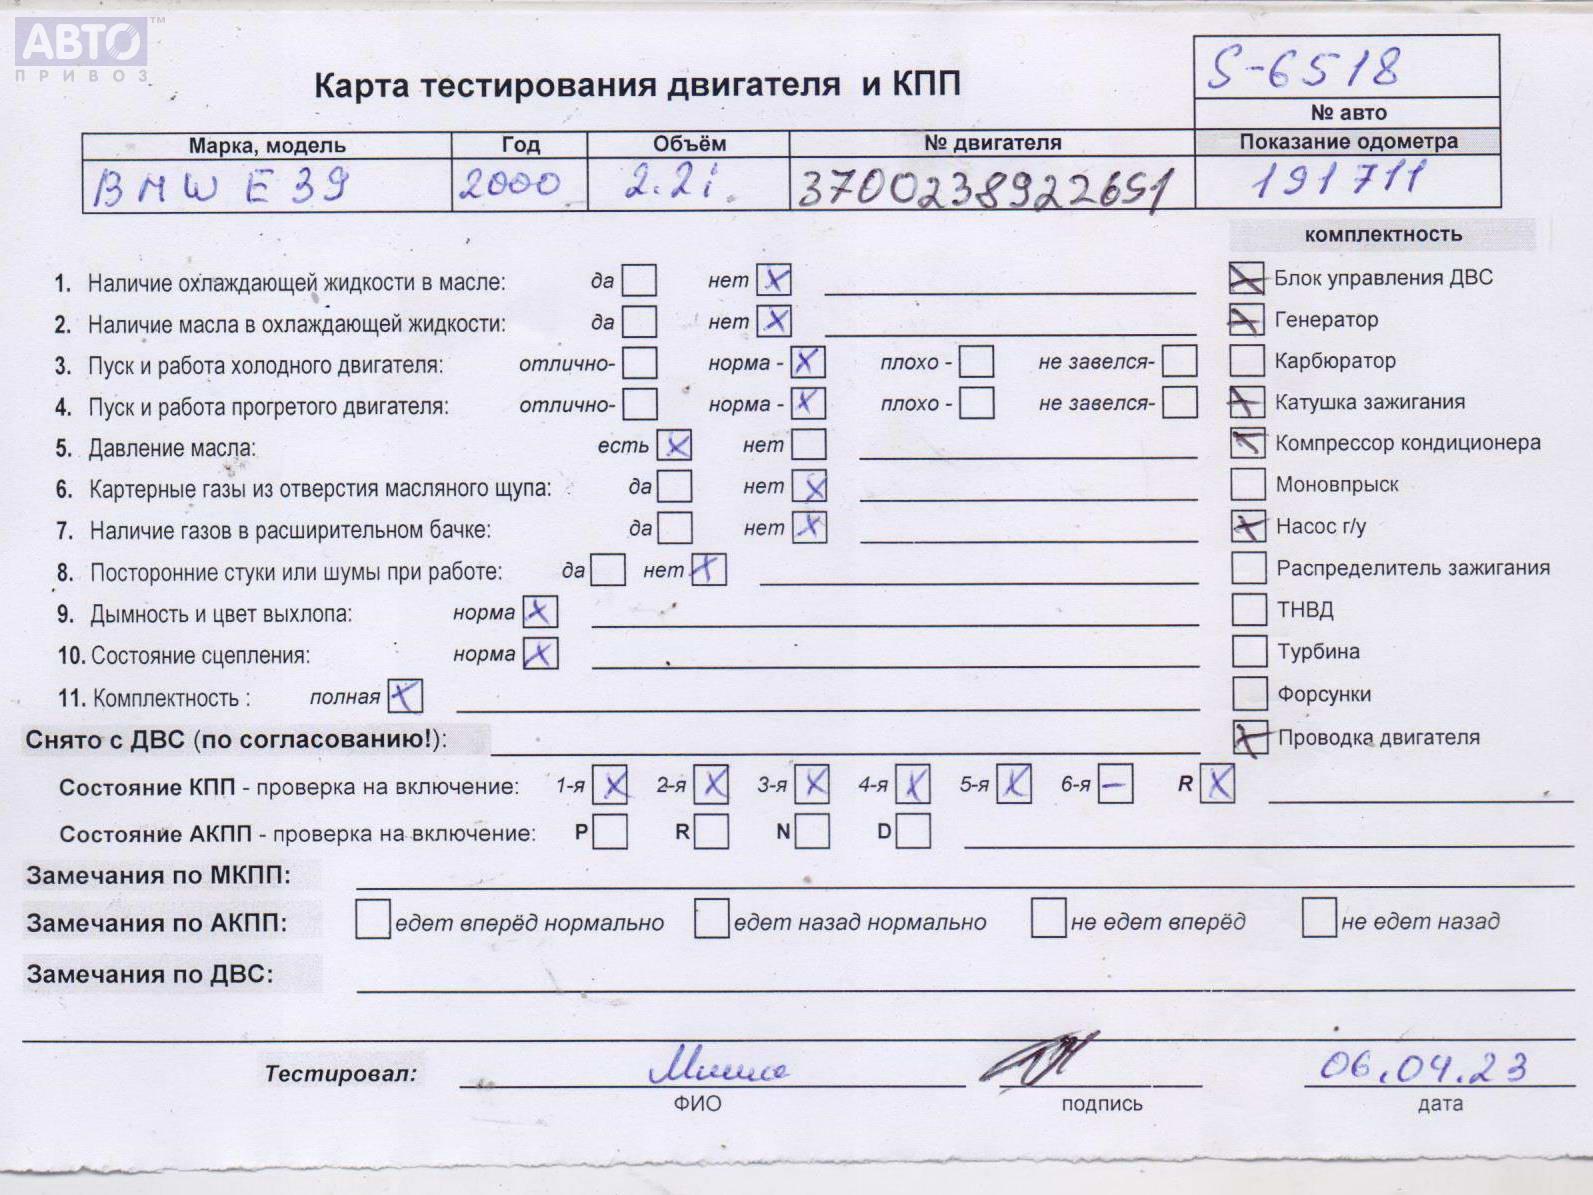 АВТО™
ПРИВОЗ
Карта тестирования двигателя и КПП
S-6518
№ авто
Марка, модель Год Объём № двигателя Показание одометра
BMW E39 2000 2.2i. 3700238922651 191711
комплектность
1. Наличие охлаждающей жидкости в масле: да нет X
Блок управления ДВС
2. Наличие масла в охлаждающей жидкости: да нет X
Генератор
3. Пуск и работа холодного двигателя: отлично- норма - X плохо - не завелся-
Карбюратор
4. Пуск и работа прогретого двигателя: отлично- норма - X плохо - не завелся-
Катушка зажигания
5. Давление масла: есть X нет
Компрессор кондиционера
6. Картерные газы из отверстия масляного щупа: да нет X
Моновпрыск
7. Наличие газов в расширительном бачке: да нет X
Насос г/у
8. Посторонние стуки или шумы при работе: да нет X
Распределитель зажигания
9. Дымность и цвет выхлопа: норма X
ТНВД
10. Состояние сцепления: норма X
Турбина
11. Комплектность : полная X
Форсунки
Снято с ДВС (по согласованию!):
Проводка двигателя
Состояние КПП - проверка на включение: 1-я X 2-я X 3-я X 4-я X 5-я X 6-я – R X
Состояние АКПП - проверка на включение: P R N D
Замечания по МКПП:
Замечания по АКПП: едет вперёд нормально едет назад нормально не едет вперёд не едет назад
Замечания по ДВС:
Тестировал: 06.04.23
ФИО подпись дата